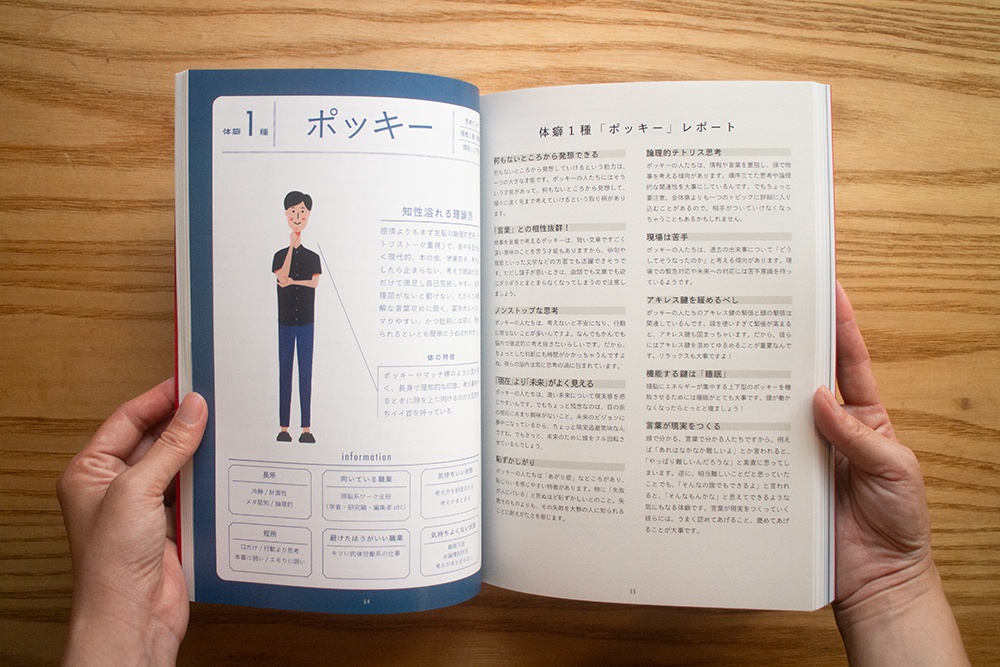 体癖1種
ポッキー
知性溢れる理論派
体の特徴
information
長所
冷静 / 計画性
メタ認知 / 論理的
向いている職業
頭脳系ワーク全般
(学者・研究職・編集者 etc)
気持ちいい状態
短所
口だけ / 行動より思考
本番に弱い / エモりに弱い
避けたほうがいい職業
キツい肉体労働系の仕事
気持ちよくない状態
54
体癖1種「ポッキー」レポート
何もないところから発想できる
何もないところから発想していけるという能力は、
一つの大きな才能です。ポッキーの人たちにはそう
いう才能があって、何もないところから発想して、
「言葉」との相性抜群!
物事を言葉で考えるポッキーは、短い文章ですごく
深い意味のことを言う才能もありますから、俳句や
短歌といった文学などの方面でも活躍できそうで
す。ただし調子が悪いときは、会話でも文章でも逆
にダラダラとまとまらなくなってしまうので注意し
ましょう。
ノンストップな思考
ポッキーの人たちは、考えないと不安になり、行動
に移せないことが多いんですよ。なんでもかんでも
脳内で徹底的に考え抜きたいらしいです。だから、
ちょっとした判断にも時間がかかっちゃうんですよ
ね。彼らの脳内は常に思考の渦に包まれています。
「現在」より「未来」がよく見える
ポッキーの人たちは、遠い未来について現実感を感
じやすいんです。でもちょっと残念なのは、目の前
の現在にあまり興味がないこと。未来のビジョンに
夢中になっているから、ちょっと現実逃避気味なん
ですね。でもきっと、未来のために頭をフル回転さ
せているんでしょう。
恥ずかしがり
ポッキーの人たちは「あがり症」なところがあり、
恥じらいを感じやすい特徴があります。特に「失敗
が人にバレる」と死ぬほど恥ずかしいとのこと。失
敗そのものよりも、その失敗を大勢の人に知られる
ことに耐えがたさを感じます。
論理的テトリス思考
ポッキーの人たちは、情報や言葉を重視し、頭で物
事を考える傾向があります。順序立てた思考や論理
的な関連性を大事にしているんです。でもちょっと
要注意。全体像よりも一つのトピックに詳細に入り
込むことがあるので、相手がついていけなくなっ
ちゃうこともあるかもしれません。
現場は苦手
ポッキーの人たちは、過去の出来事について「どう
してそうなったのか」と考える傾向があります。現
場での緊急対応や未来への対応には苦手意識を持っ
ているようです。
アキレス腱を緩めるべし
ポッキーの人たちのアキレス腱の緊張と頭の緊張は
関連しているんです。頭を使いすぎて緊張が高まる
と、アキレス腱も固まっちゃいます。だから、彼ら
にはアキレス腱を温めてゆるめることが重要なんで
す。リラックスも大事ですよ!
機能する鍵は「睡眠」
頭脳にエネルギーが集中する上下型のポッキーを機
能させるためには睡眠がとても大事です。頭が働か
なくなったらとっとと寝ましょう!
言葉が現実をつくる
頭で分かる、言葉で分かる人たちですから、例え
ば「あれはなかなか難しいよ」とか言われると、
「やっぱり難しいんだろうな」と素直に思ってし
まいます。逆に、相当難しいことだと思っていた
ことでも、「そんなの誰でもできるよ」と言われ
ると、「そんなもんかな」と思えてできるような
気にもなる体癖です。言葉が現実をつくっていく
彼らには、うまく認めてあげること、褒めてあげ
ることが大事です。
55